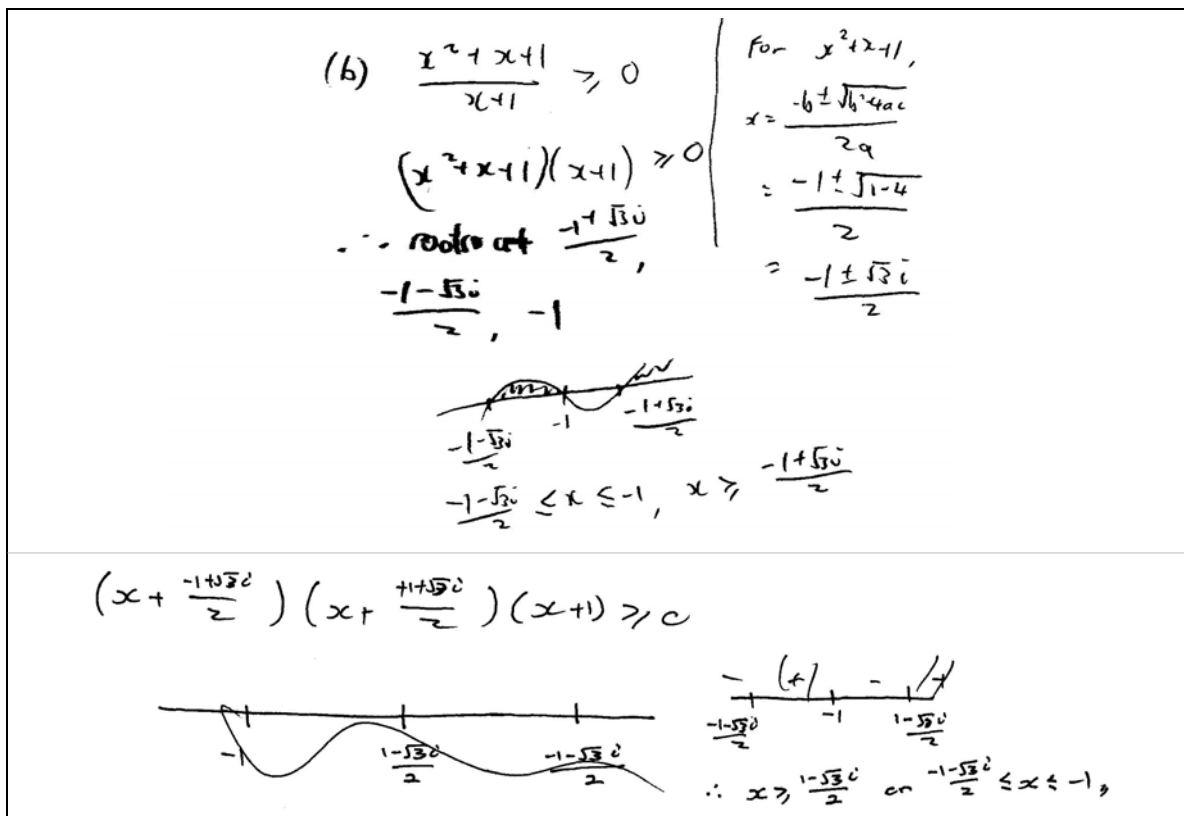 (b) (x² + x + 1)/(x+1) ≥ 0
(x² + x + 1)(x+1) ≥ 0
∴ roots at (-1+√3i)/2,
(-1-√3i)/2, -1
For x² + x + 1,
x = (-b ± √(b²-4ac))/(2a)
= (-1 ± √(1-4))/2
= (-1 ± √3 i)/2
(-1-√3i)/2 -1 (-1+√3i)/2
(-1-√3i)/2 ≤ x ≤ -1, x ≥ (-1+√3i)/2
(x + (-1+√3i)/2)(x + (+1+√3i)/2)(x+1) ≥ 0
-1 (1-√3i)/2 (-1-√3i)/2
- (+) - +
(-1-√3i)/2 -1 (1-√3i)/2
∴ x ≥ (1-√3i)/2 or (-1-√3i)/2 ≤ x ≤ -1,